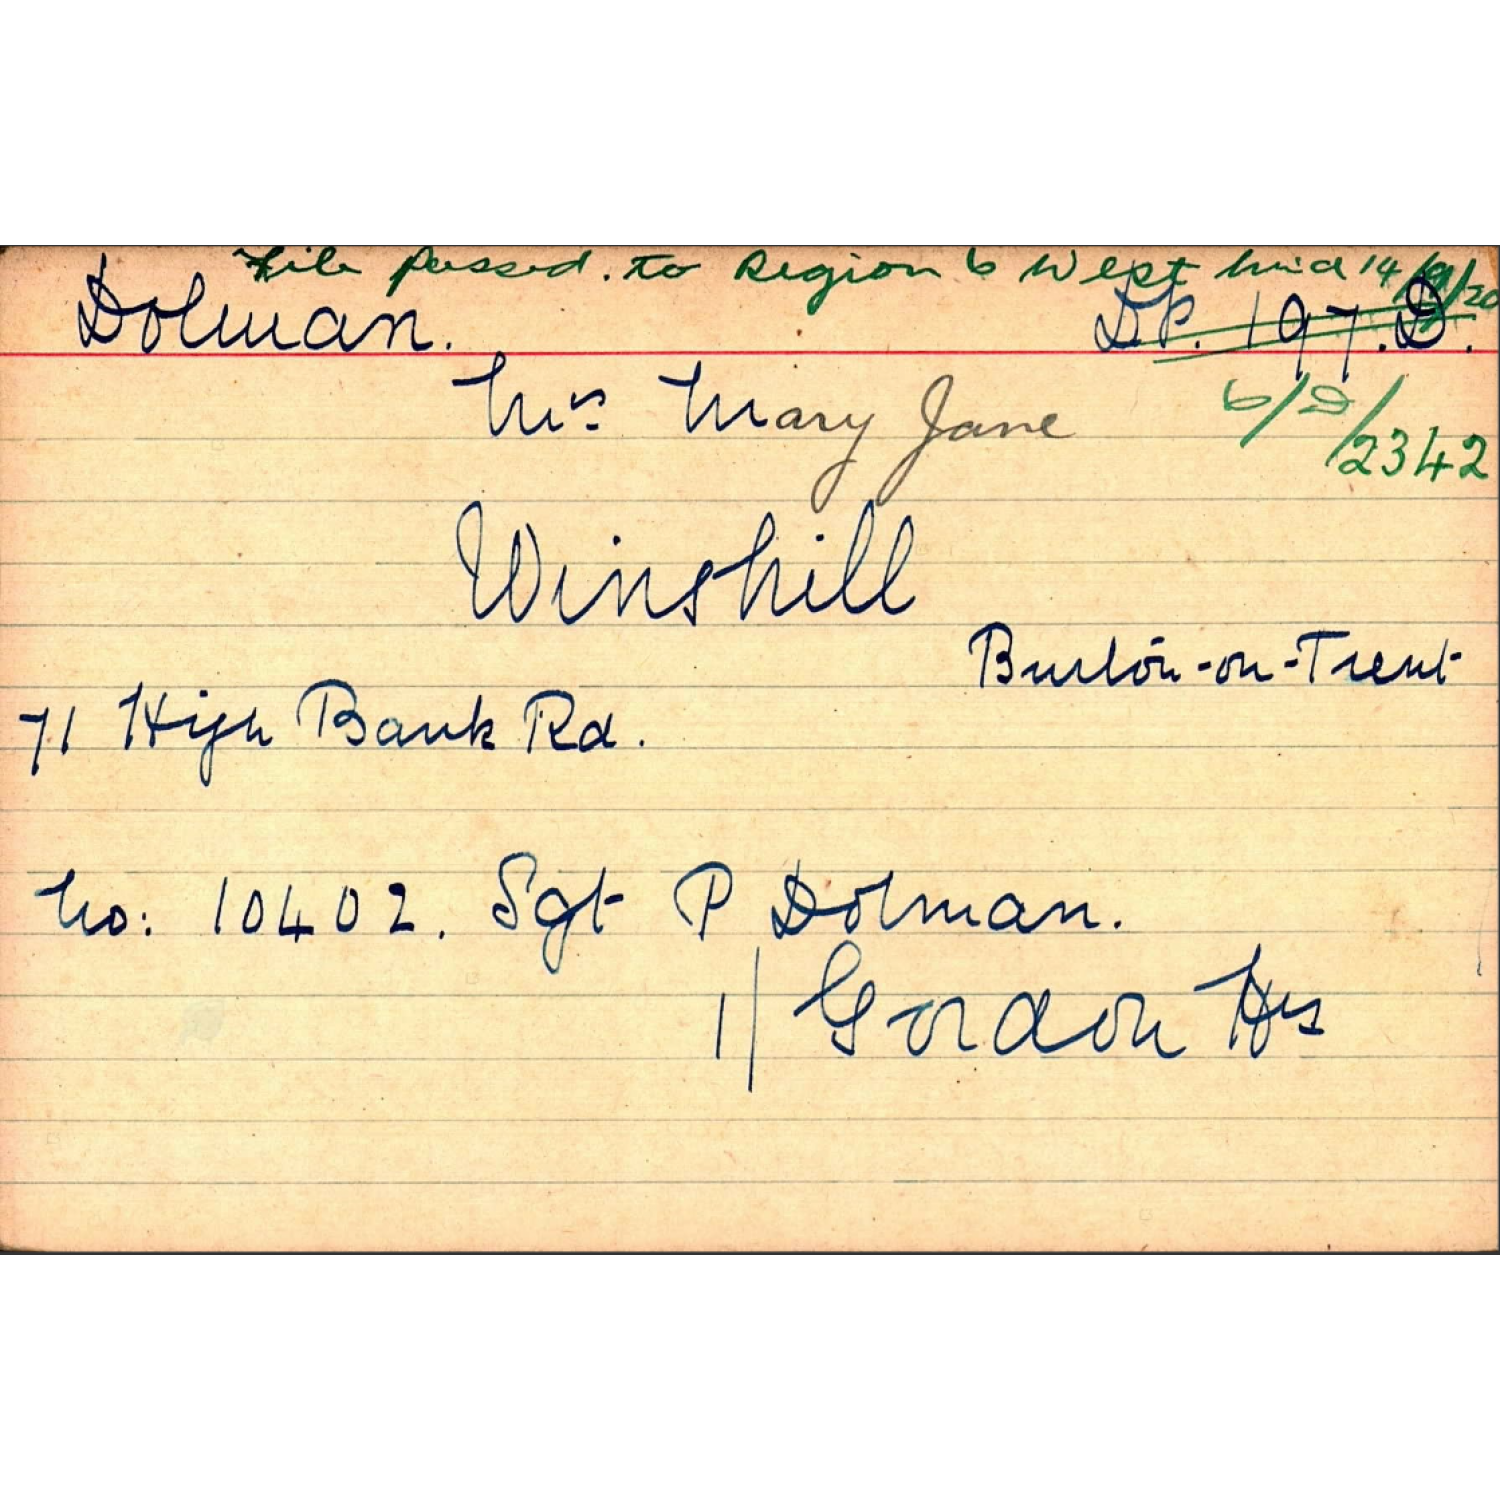 File passed. to Region 6 West Mid 14/9/20
Dolman. DP. 197.D.
Mrs Mary Jane
6/D/2342
Winshill
Burton-on-Trent
71 High Bank Rd.
No: 10402. Sgt P Dolman.
1/ Gordon Hrs